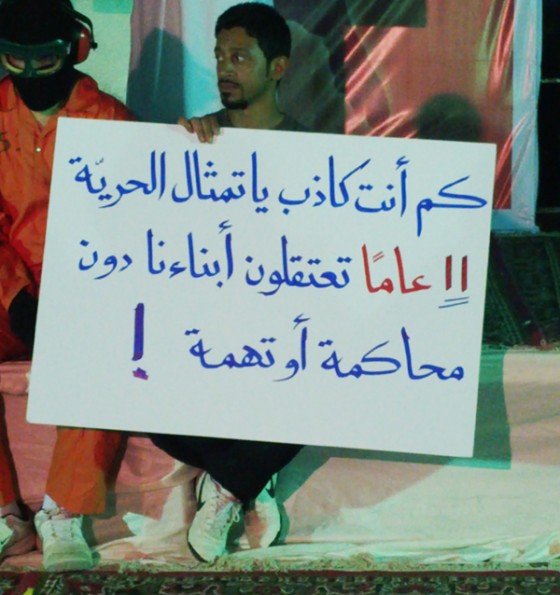 كم أنت كاذب يا تمثال الحريّة
١١ عامًا تعتقلون أبناءنا دون
محاكمة أو تهمة !